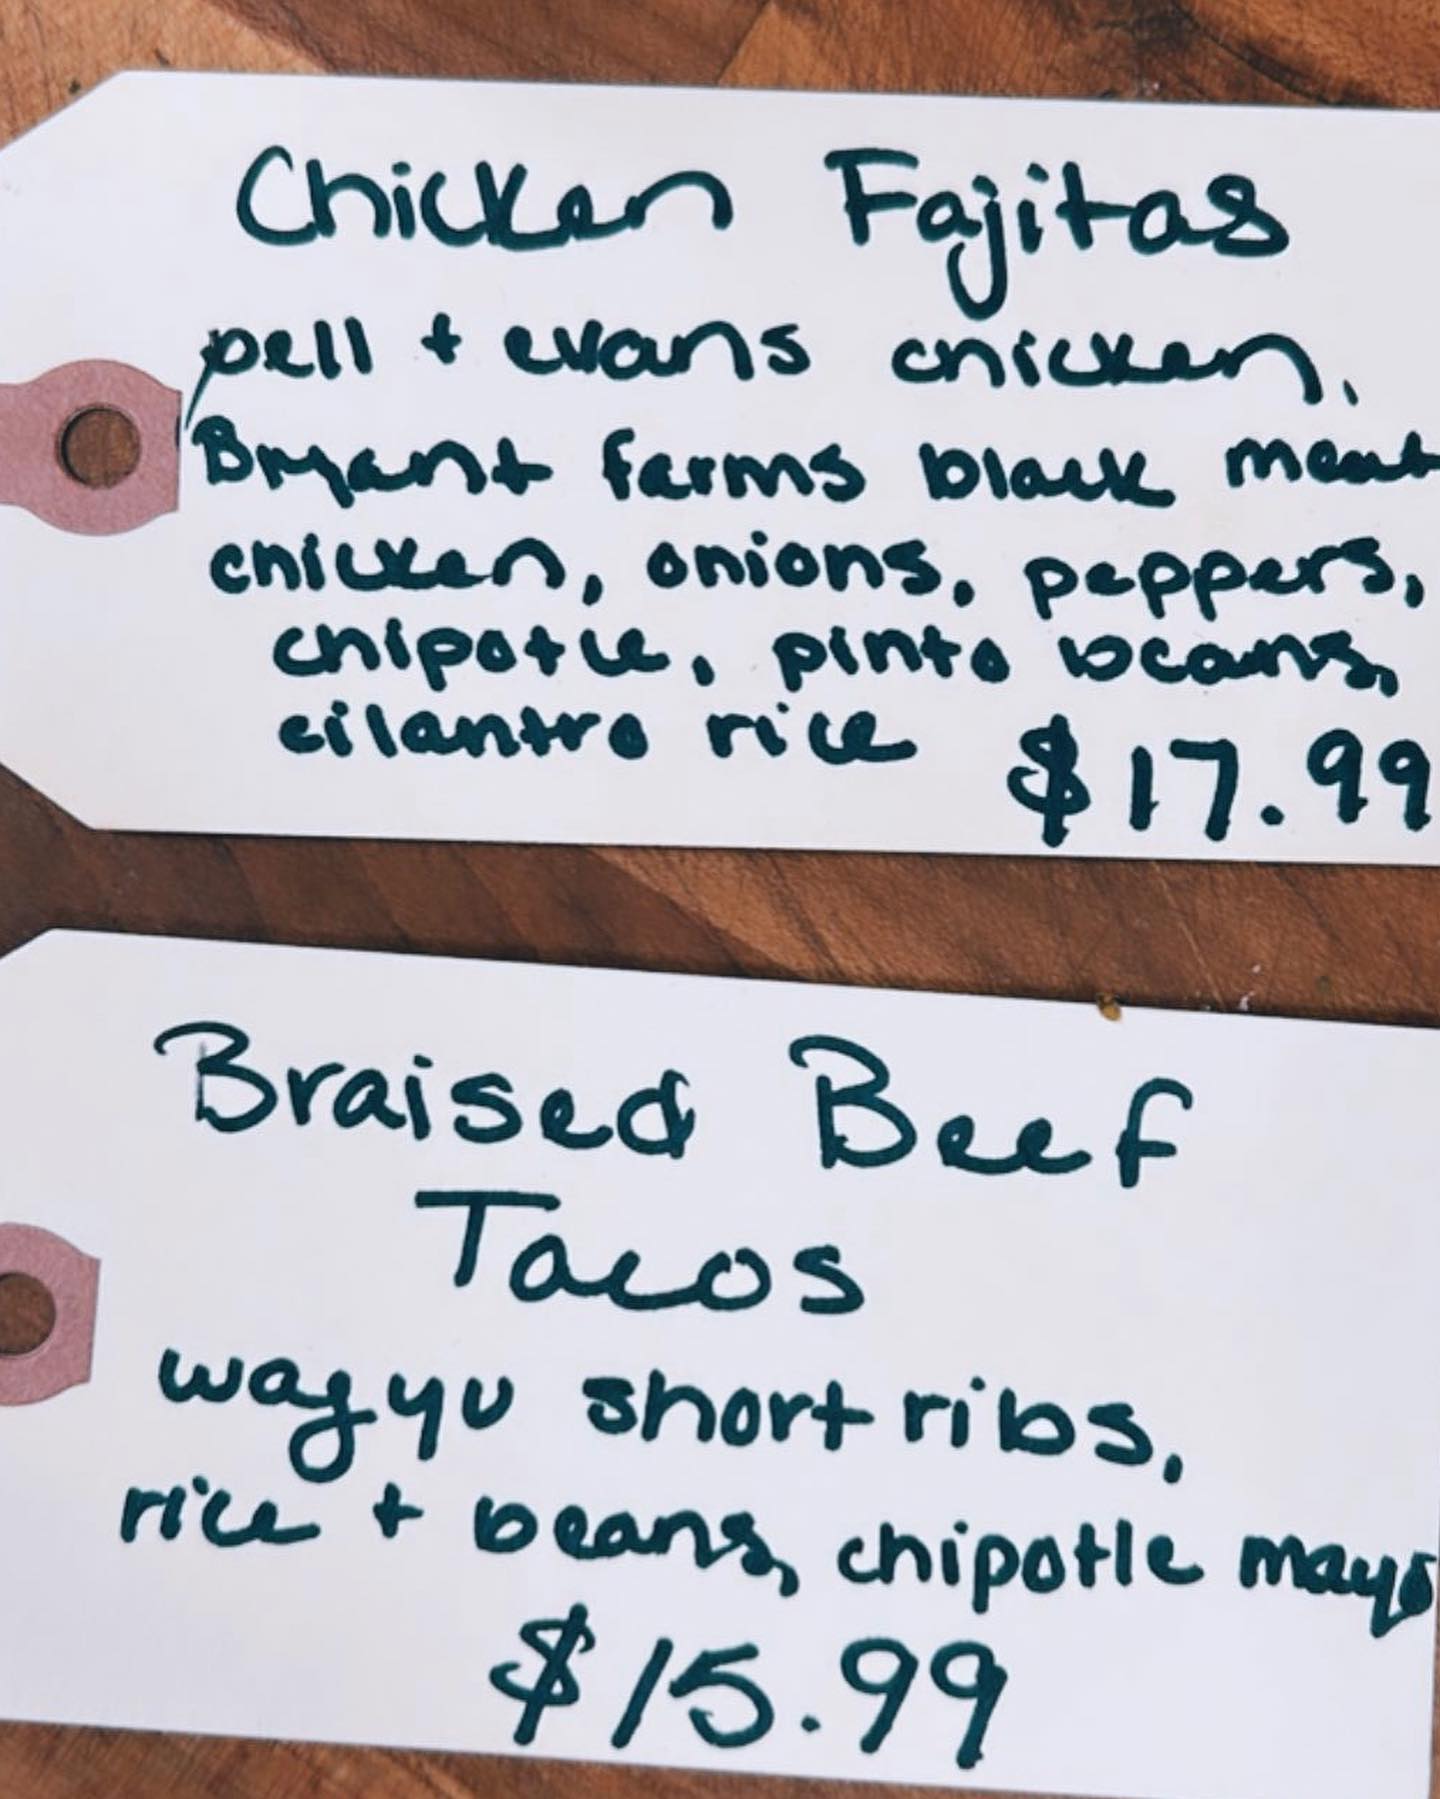 Chicken Fajitas
pell + evans chicken,
Bryant farms black meat
chicken, onions, peppers,
chipotle, pinto beans,
cilantro rice $17.99
Braised Beef
Tacos
wagyu short ribs,
rice + beans, chipotle mayo
$15.99